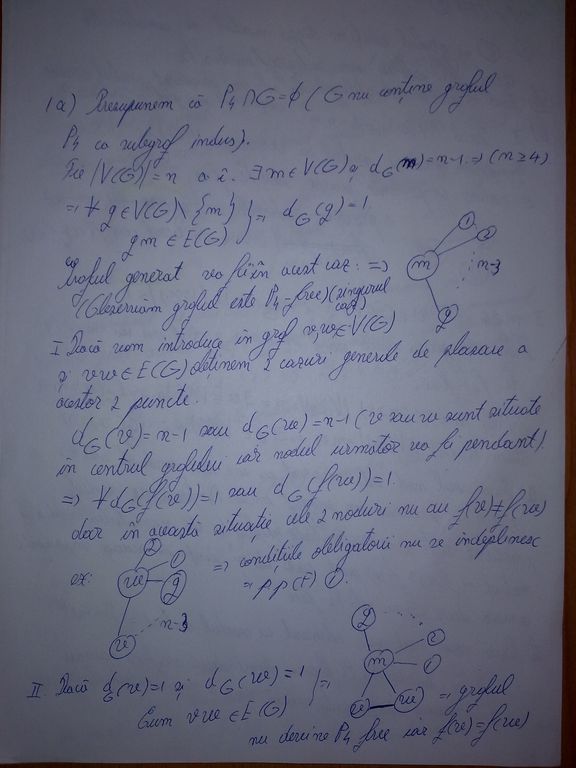 1a) Presupunem că P4 ∩ G = ϕ (G nu conține graful
P4 ca subgraf indus).
Fie |V(G)| = n a.î. ∃ m ∈ V(G) și dG(m) = n-1 ⇒ (n ≥ 4)
⇒ ∀ g ∈ V(G) \ {m} } ⇒ dG(g) = 1
gm ∈ E(G)
Graful generat va fi în acest caz: ⇒
(Observăm graful este P4-free) (singurul
caz)
1
2
m
n-3
g
I Dacă vom introduce în graf v, w ∈ V(G)
și vw ∈ E(G) obținem 2 cazuri generale de plasare a
acestor 2 puncte.
dG(v) = n-1 sau dG(w) = n-1 (v sau w sunt situate
în centrul grafului iar nodul următor va fi pendant).
⇒ ∀ dG(f(v)) = 1 sau dG(f(w)) = 1.
dar în această situație cele 2 noduri nu au f(v) ≠ f(w)
ex:
2
1
w
g
n-3
v
⇒ condițiile obligatorii nu se îndeplinesc
⇒ p.p (F) ①.
g
2
m
1
v
w
II. Dacă dG(v) = 1 și dG(w) = 1 } ⇒
Cum vw ∈ E(G)
⇒ graful
nu devine P4 free iar f(v) = f(w)